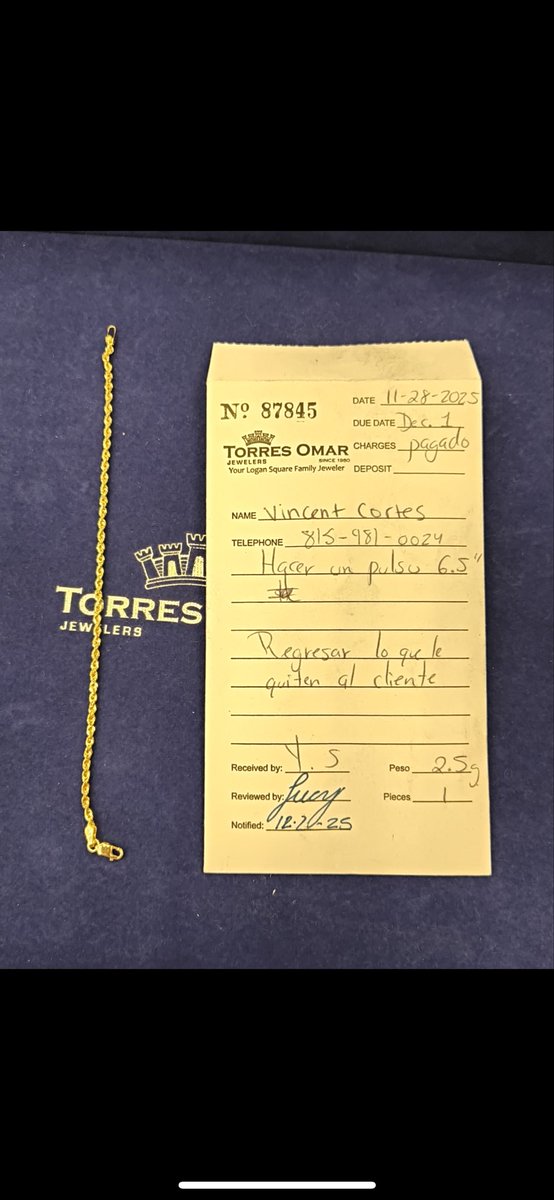 Nº 87845
DATE 11-28-2025
DUE DATE Dec. 1
CHARGES pagado
DEPOSIT
TORRES OMAR
JEWELERS SINCE 1980
Your Logan Square Family Jeweler
NAME Vincent Cortes
TELEPHONE 815-981-0024
Hacer un pulso 6.5"
Regresar lo que le
quiten al cliente
Received by: Y. S
Peso 2.5g
Reviewed by: Lucy
Pieces 1
Notified: 12-7-25
TORRES
JEWELERS